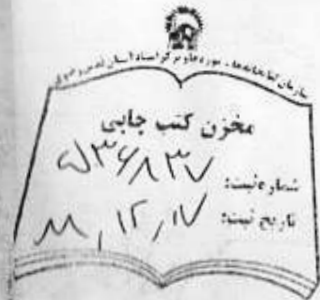 سازمان کتابخانه‌ها، موزه‌ها و مرکز اسناد آستان قدس رضوی
مخزن کتب چاپی
شماره ثبت:
تاریخ ثبت: ۸۸,۱۲,۱۷